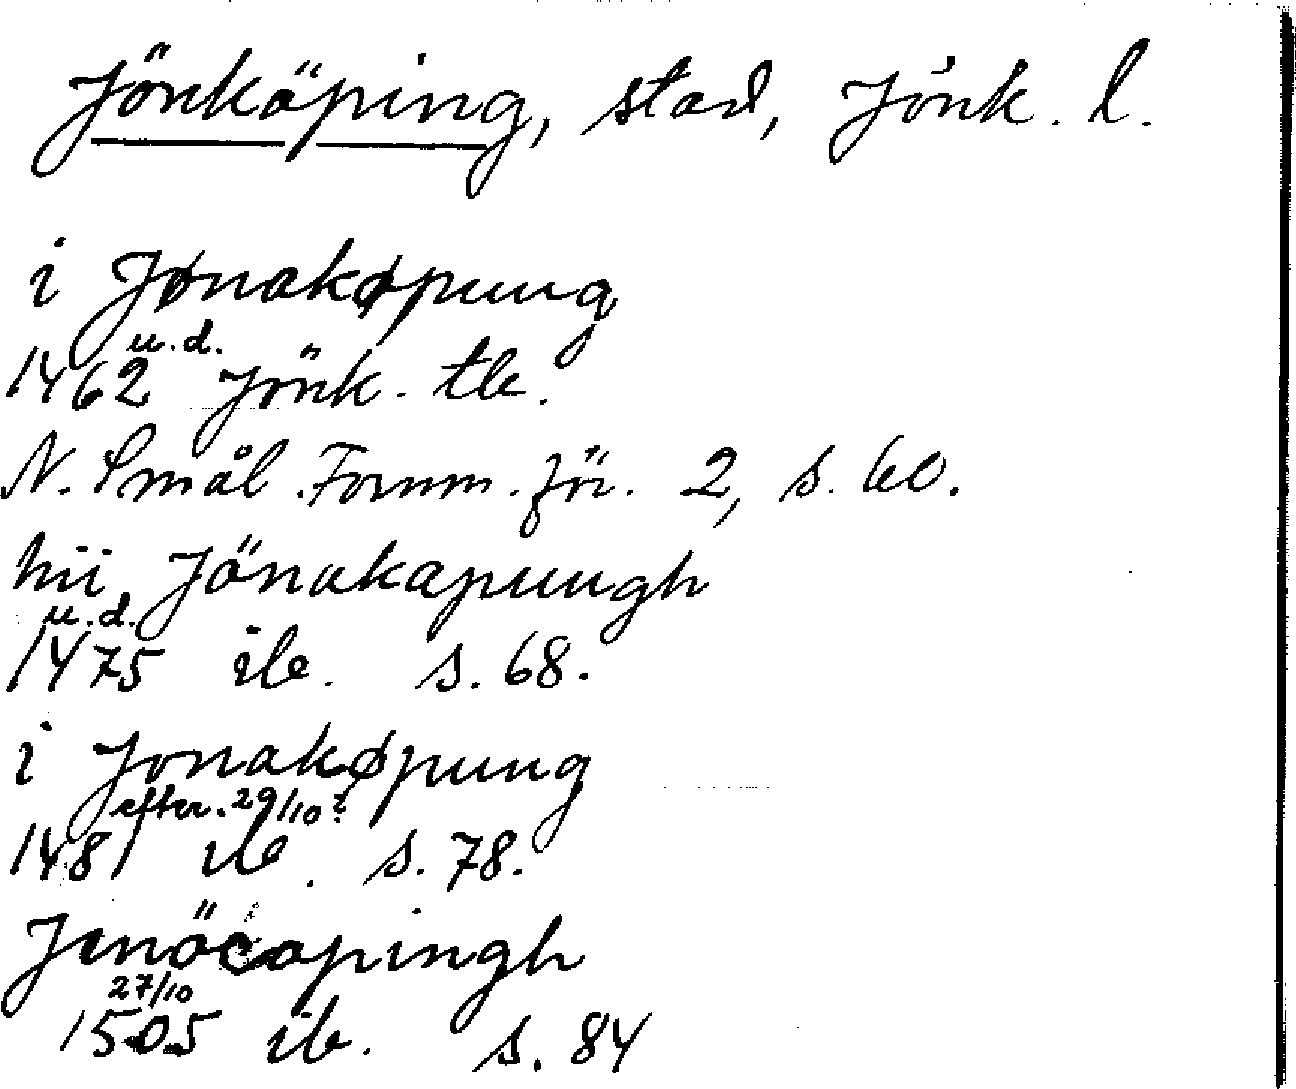 Jönköping, stad, Jönk. l.
i Jønakøpung
u.d.
1462 Jönk. tb.
N. Smål. Fornm. för. 2, s. 60.
hii Jönakapungh
u.d.
1475 ib. s. 68.
i Jonakøpung
efter 29/10?
1481 ib. s. 78.
Jenöcopingh
27/10
1505 ib. s. 84